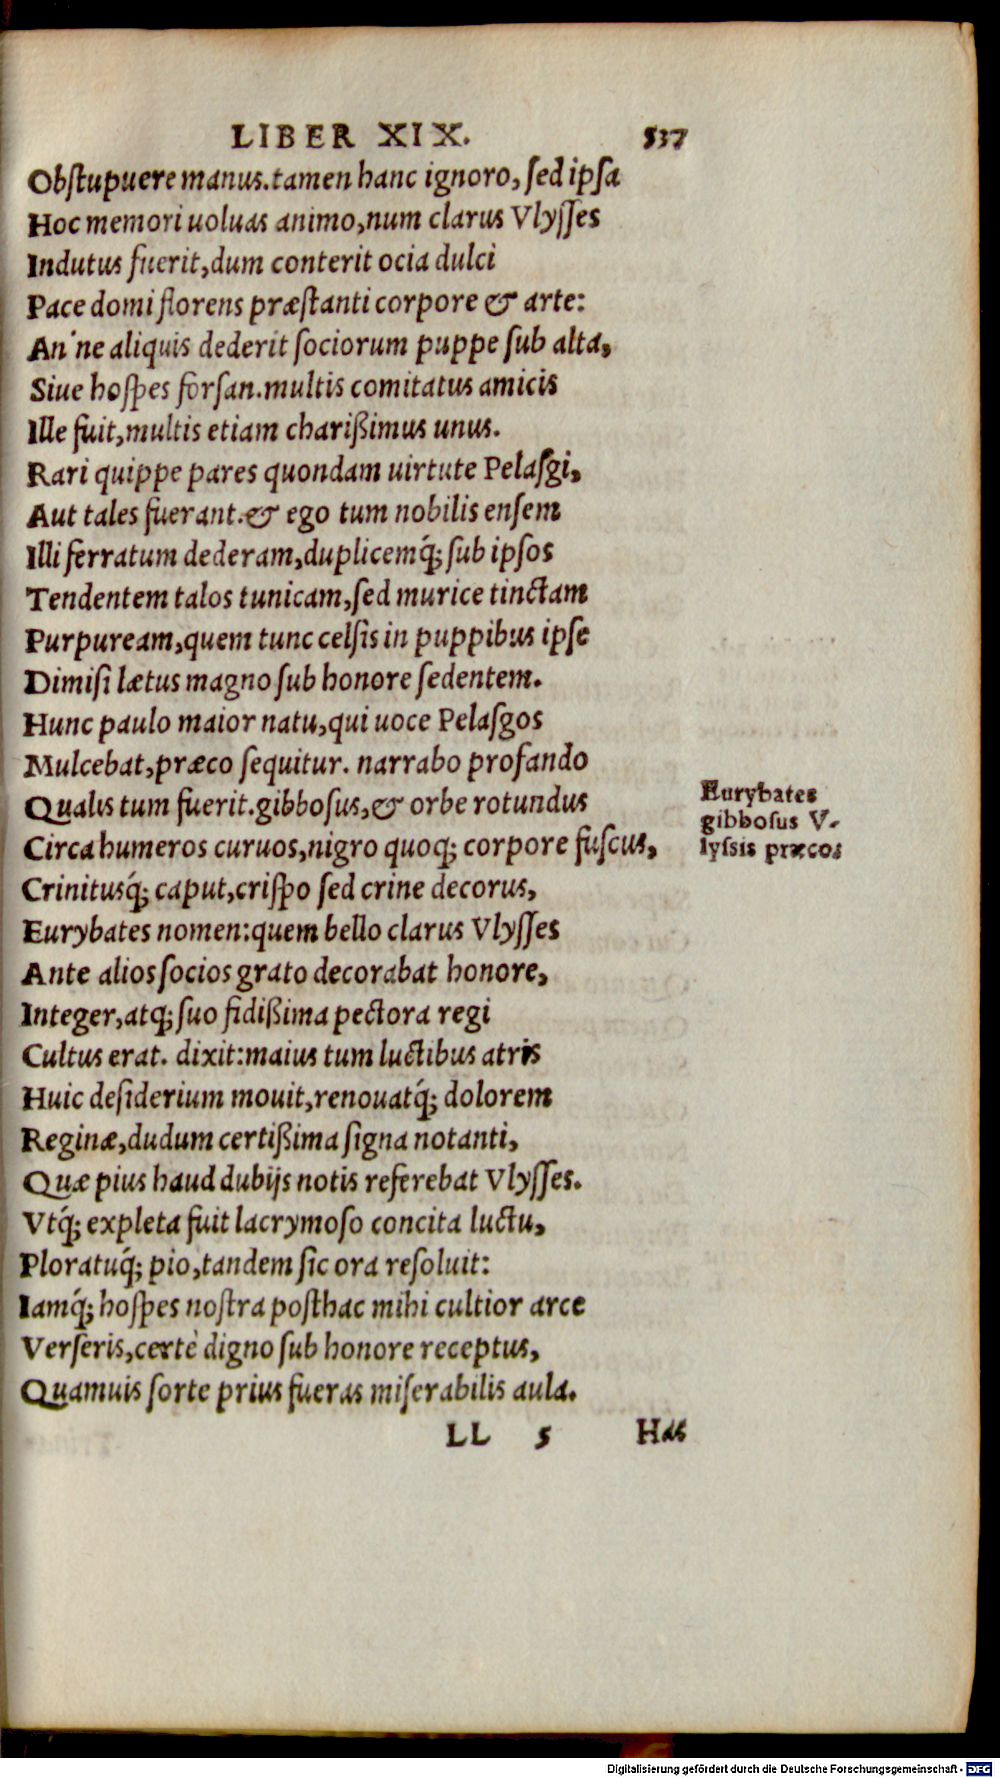 LIBER XIX. 537
Obſtupuere manus. tamen hanc ignoro, ſed ipſa
Hoc memori uoluas animo, num clarus Vlyſſes
Indutus fuerit, dum conterit ocia dulci
Pace domi florens præſtanti corpore & arte:
An'ne aliquis dederit ſociorum puppe ſub alta,
Siue hoſpes forſan. multis comitatus amicis
Ille fuit, multis etiam charißimus unus.
Rari quippe pares quondam uirtute Pelaſgi,
Aut tales fuerant. & ego tum nobilis enſem
Illi ferratum dederam, duplicemq́; ſub ipſos
Tendentem talos tunicam, ſed murice tinctam
Purpuream, quem tunc celſis in puppibus ipſe
Dimiſi lætus magno ſub honore ſedentem.
Hunc paulo maior natu, qui uoce Pelaſgos
Mulcebat, præco ſequitur. narrabo profando
Qualis tum fuerit. gibboſus, & orbe rotundus
Circa humeros curuos, nigro quoq; corpore fuſcus,
Crinitusq́; caput, criſpo ſed crine decorus,
Eurybates nomen: quem bello clarus Vlyſſes
Ante alios ſocios grato decorabat honore,
Integer, atq; ſuo fidißima pectora regi
Cultus erat. dixit: maius tum luctibus atris
Huic deſiderium mouit, renouatq́; dolorem
Reginæ, dudum certißima ſigna notanti,
Quæ pius haud dubijs notis referebat Vlyſſes.
Vtq́; expleta fuit lacrymoſo concita luctu,
Ploratuq́; pio, tandem ſic ora reſoluit:
Iamq́; hoſpes noſtra poſthac mihi cultior arce
Verſeris, certè digno ſub honore receptus,
Quamuis ſorte prius fueras miſerabilis aula.
LL 5 Has
Eurybates
gibboſus V-
lyſsis præco.
Digitalisierung gefördert durch die Deutsche Forschungsgemeinschaft - DFG